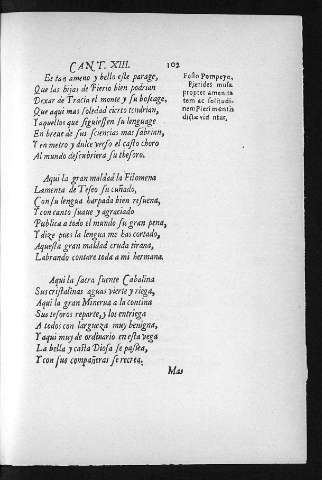 CANT. XIII. 102
Es tan ameno y bello este parage,
Que las hijas de Pierio bien podrian
Dexar de Tracia el monte y su boscage,
Que aqui mas soledad cierto tendrian,
Y aquellos que siguiessen su lenguage
En breue de sus sciencias mas sabrian,
Y en metro y dulce verso el casto choro
Al mundo descubriera su thesoro.
Aqui la gran maldad la Filomena
Lamenta de Teseo su cuñado,
Con su lengua harpada bien resuena,
Y con canto suaue y agraciado
Publica a todo el mundo su gran pena,
Y dize pues la lengua me has cortado,
Aquesta gran maldad cruda tirana,
Labrando contare toda a mi hermana.
Aqui la sacra fuente Cabalina
Sus cristalinas aguas vierte y riega,
Aqui la gran Minerua a la contina
Sus tesoros reparte, y los entriega
A todos con largueza muy benigna,
Y aqui muy de ordinario en esta vega
La bella y casta Diosa se passea,
Y con sus compañeras se recrea.
Mas
Festo Pompeyo,
Pierides musæ
propter amenita
tem ac solitudi-
nem Pieri montis
dictæ